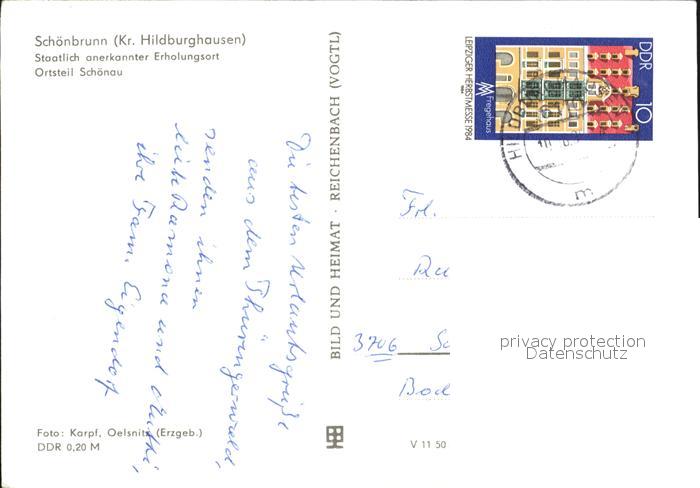 Schönbrunn (Kr. Hildburghausen)
Staatlich anerkannter Erholungsort
Ortsteil Schönau
Die besten Urlaubsgrüße
aus dem Thüringerwald,
senden ihnen
liebe Ramona und Mutti,
ihre Fam. Eigendorf
Foto: Karpf, Oelsnitz (Erzgeb.)
DDR 0,20 M
BILD UND HEIMAT · REICHENBACH (VOGTL)
V 11 50
LEIPZIGER HERBSTMESSE 1984
Fregehaus
DDR
10
Frl.
3706
privacy protection
Datenschutz